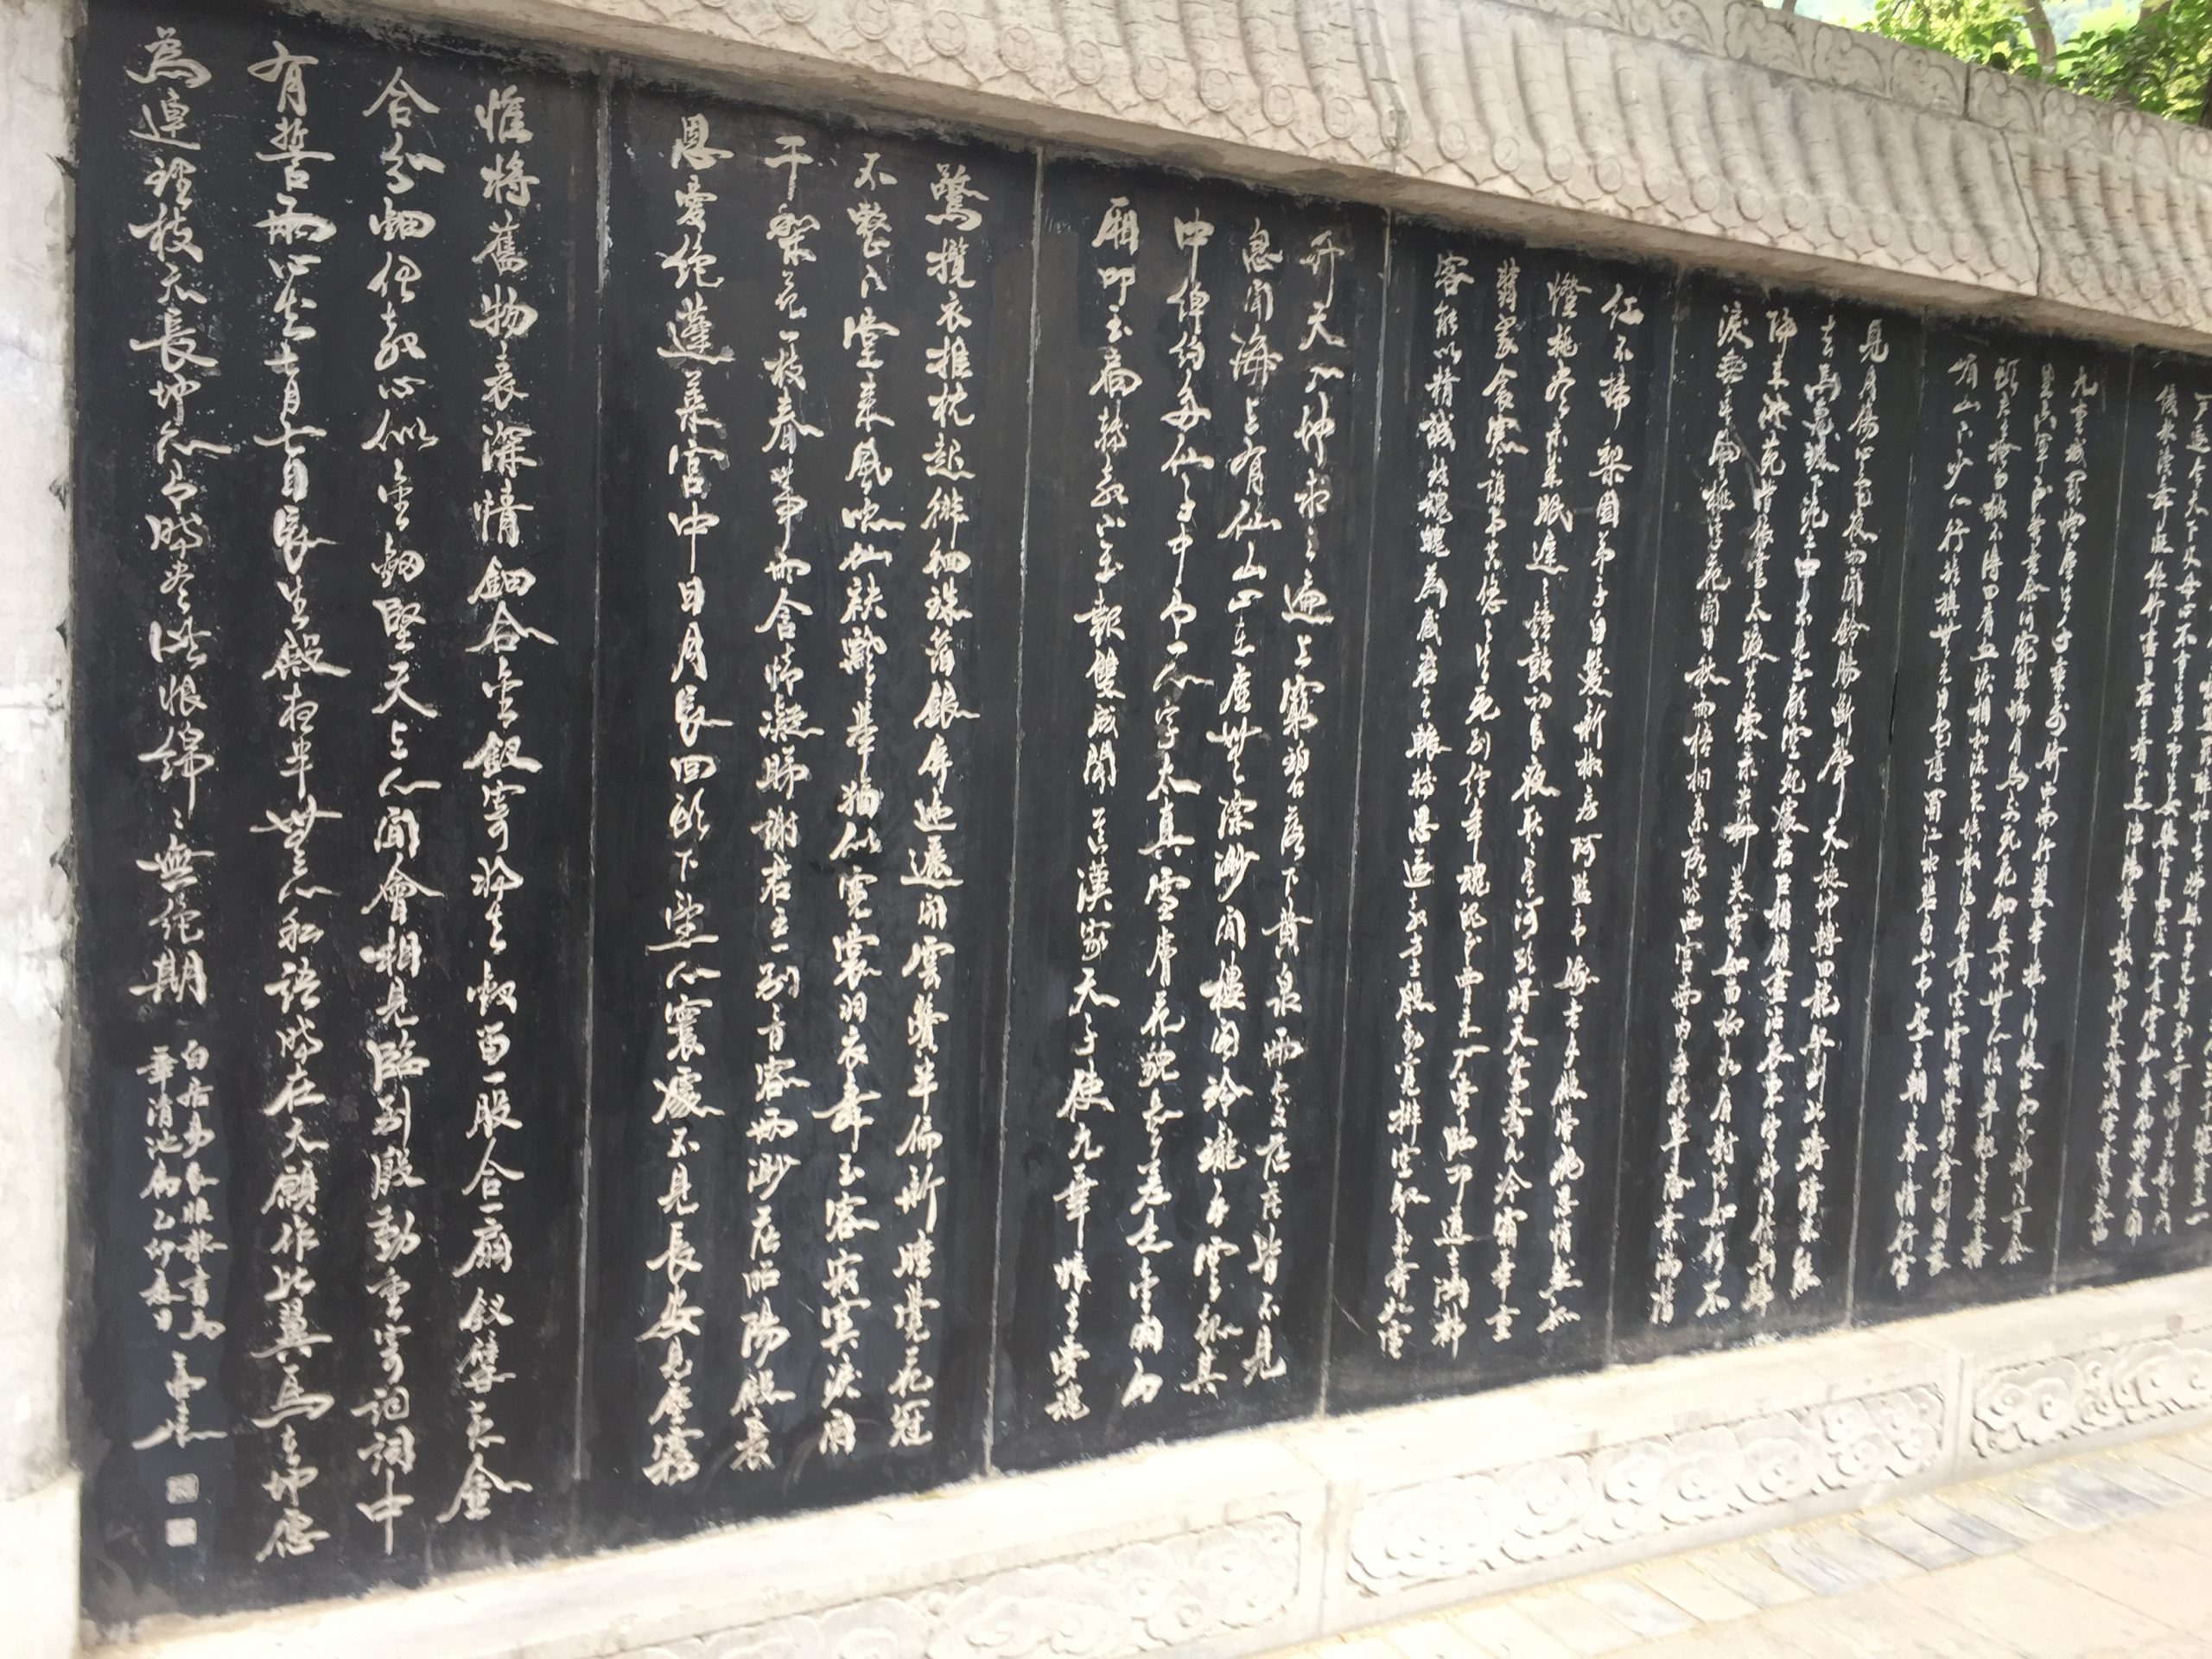 九重城闕煙塵生千乘萬騎西南行翠華搖搖行復止西出都門百餘
里六軍不發無奈何宛轉蛾眉馬前死花鈿委地無人收翠翹金雀玉搔
頭君王掩面救不得回看血淚相和流黃埃散漫風蕭索雲棧縈紆登劍閣峨
嵋山下少人行旌旗無光日色薄蜀江水碧蜀山青聖主朝朝暮暮情行宮
見月傷心色夜雨聞鈴腸斷聲天旋地轉回龍馭到此躊躇不能
去馬嵬坡下泥土中不見玉顏空死處君臣相顧盡沾衣東望都門信馬
歸來池苑皆依舊太液芙蓉未央柳芙蓉如面柳如眉對此如何不
淚垂春風桃李花開日秋雨梧桐葉落時西宮南內多秋草落葉滿階
紅不掃梨園弟子白髮新椒房阿監青娥老夕殿螢飛思悄然孤
燈挑盡未成眠遲〻鐘鼓初長夜耿〻星河欲曙天鴛鴦瓦冷霜華重
翡翠衾寒誰與共悠〻生死別經年魂魄不曾來入夢臨邛道士鴻都
客能以精誠致魂魄為感君王輾轉思遂教方士殷勤覓排空馭氣奔如電
升天入地求之遍上窮碧落下黃泉兩處茫茫皆不見
忽聞海上有仙山山在虛無縹緲間樓閣玲瓏五雲起其
中綽約多仙子中有一人字太真雪膚花貌參差是金闕西
廂叩玉扃轉教小玉報雙成聞道漢家天子使九華帳裏夢魂
驚攬衣推枕起徘徊珠箔銀屏迤邐開雲鬢半偏新睡覺花冠
不整下堂來風吹仙袂飄〻舉猶似霓裳羽衣舞玉容寂寞淚闌
干梨花一枝春帶雨含情凝睇謝君王一別音容兩渺茫昭陽殿裏
恩愛絕蓬萊宮中日月長回頭下望人寰處不見長安見塵霧
惟將舊物表深情鈿合金釵寄將去釵留一股合一扇釵擘黃金
合分鈿但教心似金鈿堅天上人間會相見臨別殷勤重寄詞詞中
有誓兩心知七月七日長生殿夜半無人私語時在天願作比翼鳥在地願
為連理枝天長地久有時盡此恨綿〻無絕期
白居易長恨歌書為
華清池屬乙卯春日